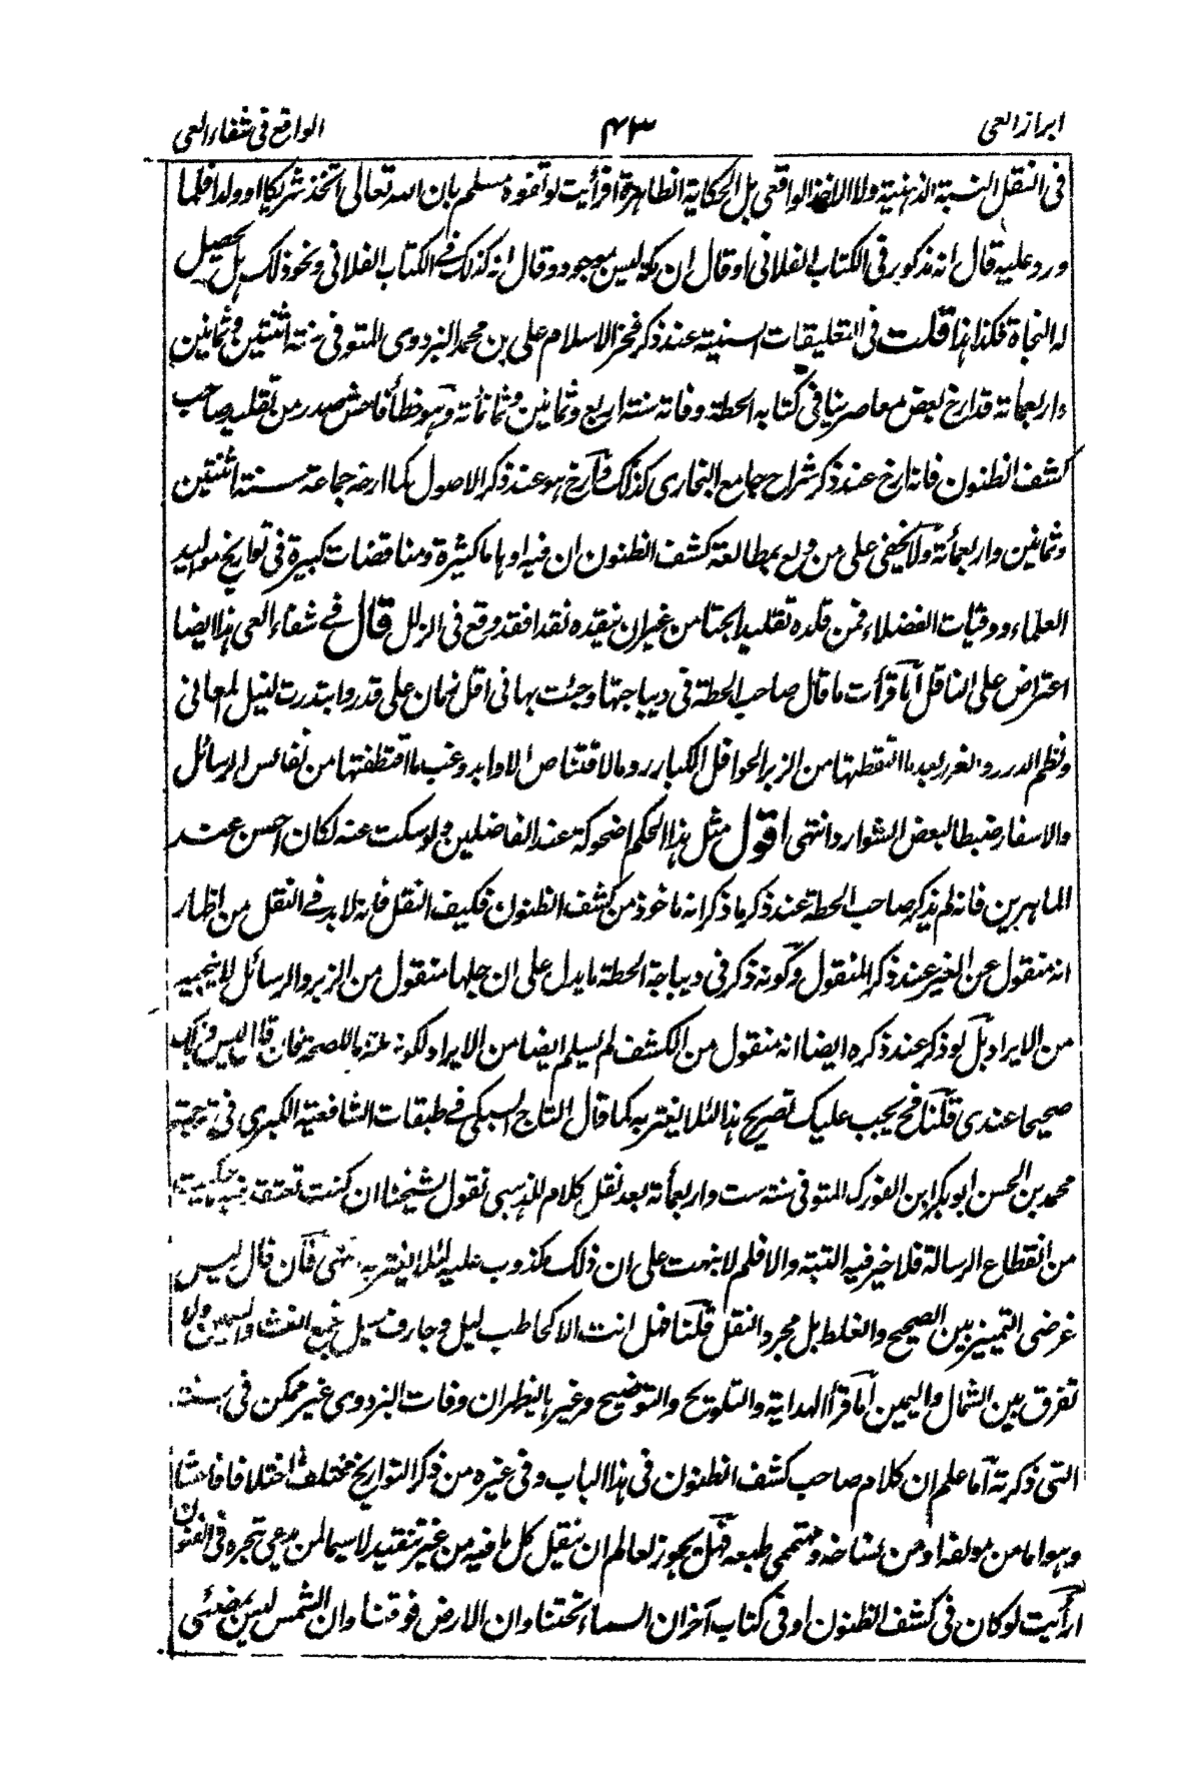 ابراز الغی ۴۳ الواقع فی شفاء العی
فی النقل النسبة الذهنية ولا الاخذ الواقعی بل الحكاية الظاهرة افرأيت لو تفوه مسلم بان الله تعالى اتخذ شريكا او ولدا فلما
ورد عليه قال انه مذكور فی الكتاب الفلانی او قال ان مكة ليس بموجود وقال انه كذلك فی الكتاب الفلانی ونحو ذلك هل يحصل
له النجاة فكذا هذا قلت فی التعليقات السنية عند ذكر فخر الاسلام علی بن محمد البزدوی المتوفی سنة اثنتين وثمانين
واربعمائة قد ارخ بعض معاصرينا فی كتابه الحطة وفاته سنة اربع وثمانين وثمانمائة وهو خطأ فاحش صدر من تقليد صاحب
كشف الظنون فانه ارخ عند ذكر شراح جامع البخاری كذلك وارخ هو عند ذكر الاصول كما ارخه جماعة سنة اثنتين
وثمانين واربعمائة ولا يخفی علی من ولع بمطالعة كشف الظنون ان فيه اوهاما كثيرة ومناقضات كبيرة فی تواريخ مواليد
العلماء ووفيات الفضلاء فمن قلده تقليدا بحتا من غير ان ينقده نقدا فقد وقع فی الزلل قال فی شفاء العی هذا ايضا
اعتراض علی الناقل أما قرأت ما قال صاحب الحطة فی ديباجتها وجئت بها فی اقل زمان علی قدر وابتدرت لنيل المعانی
ونظم الدرر والغرر بعد ما التقطتها من الزبر الحوافل الكبار روما لاقتناص الاوابد وغب ما اقتطفتها من نفائس الرسائل
والاسفار ضبطا لبعض الشوارد انتهی اقول مثل هذا الحكم اضحوكة عند الفاضلين ولو سكت عنه لكان احسن عند
الماهرين فانه لم يذكر صاحب الحطة عند ذكر ما ذكر انه ماخوذ من كشف الظنون فكيف النقل فانه لا بد فی النقل من اظهار
انه منقول عن الغير عند ذكر المنقول وكونه ذكر فی ديباجة الحطة ما يدل علی ان جلها منقول من الزبر والرسائل لا ينجيه
من الايراد بل لو ذكر عند ذكره ايضا انه منقول من الكشف لم يسلم ايضا من الايراد لكونه ملتزما للصحة فان قال ليس ذلك
صحيحا عندی قلنا فح يجب عليك تصريح هذا لئلا يغتر به كما قال التاج السبكی فی طبقات الشافعية الكبری فی ترجمة
محمد بن الحسن ابو بكر ابن الفورك المتوفی سنة ست واربعمائة بعد نقل كلام الذهبی نقول لشيخنا ان كنت تعتقد فيه ما حكيت
من انقطاع الرسالة فلا خير فيه البتة والا فلم لا نبهت علی ان ذلك مكذوب عليه لئلا يغتر به انتهی فان قال ليس
غرضی التمييز بين الصحيح والغلط بل مجرد النقل قلنا فهل انت الا كحاطب ليل وجارف سيل تجمع الغث والسمين ولا
تفرق بين الشمال واليمين أما قرأ الهداية والتلويح والتوضيح وغيرها ليظهر ان وفات البزدوی غير ممكن فی سنة
التی ذكرته أما علم ان كلام صاحب كشف الظنون فی هذا الباب وفی غيره من ذكر التواريخ مختلف اختلافا فاحشا
وهو اما من مولفه او من نساخه ومهتمی طبعه فهل يجوز لعالم ان ينقل كل ما فيه من غير تنقيد لا سيما لمن يدعی تبحره فی الفنون
ارأيت لو كان فی كشف الظنون او فی كتاب آخر ان السماء تحتنا وان الارض فوقنا وان الشمس ليس بمضئی